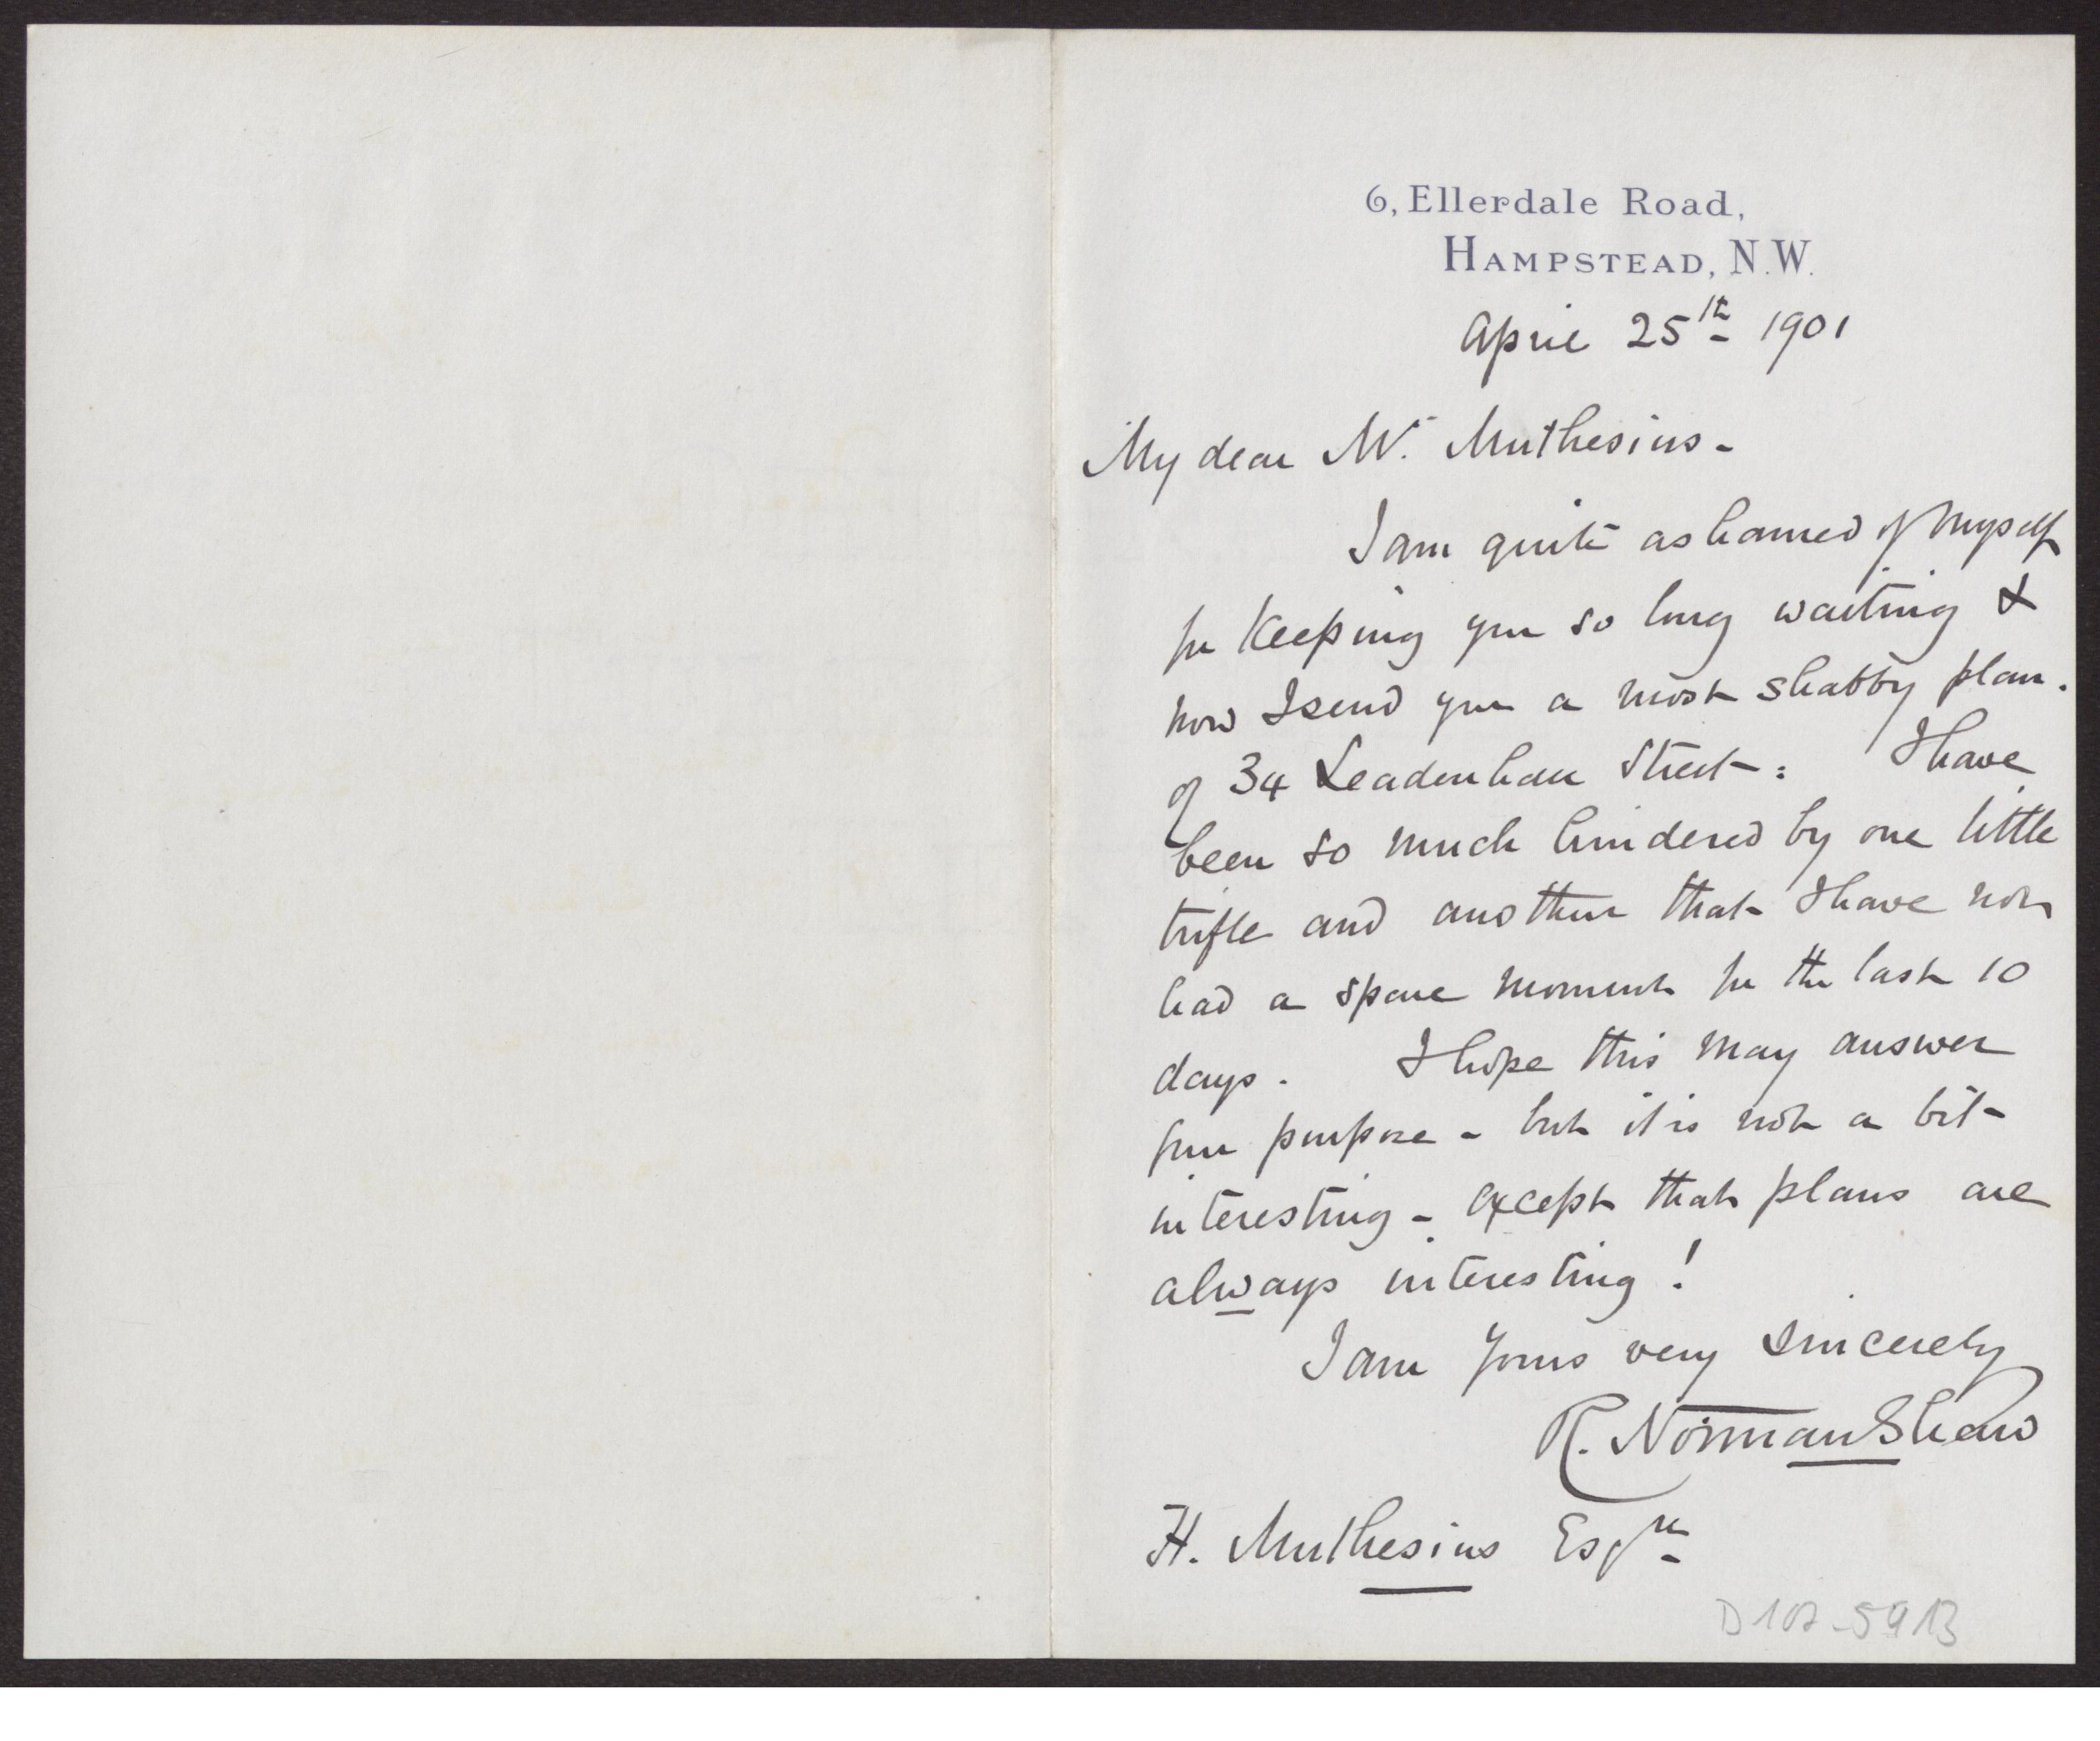 6, Ellerdale Road,
HAMPSTEAD, N.W.
April 25th 1901
My dear Mr. Muthesius -
I am quite ashamed of myself
for keeping you so long waiting &
now I send you a most shabby plan.
of 34 Leadenhall Street: I have
been so much hindered by one little
trifle and another that I have not
had a spare moment for the last 10
days. I hope this may answer
your purpose - but it is not a bit
interesting - except that plans are
always interesting!
I am Yours very sincerely
R. Norman Shaw
H. Muthesius Esqre
D 102-5913